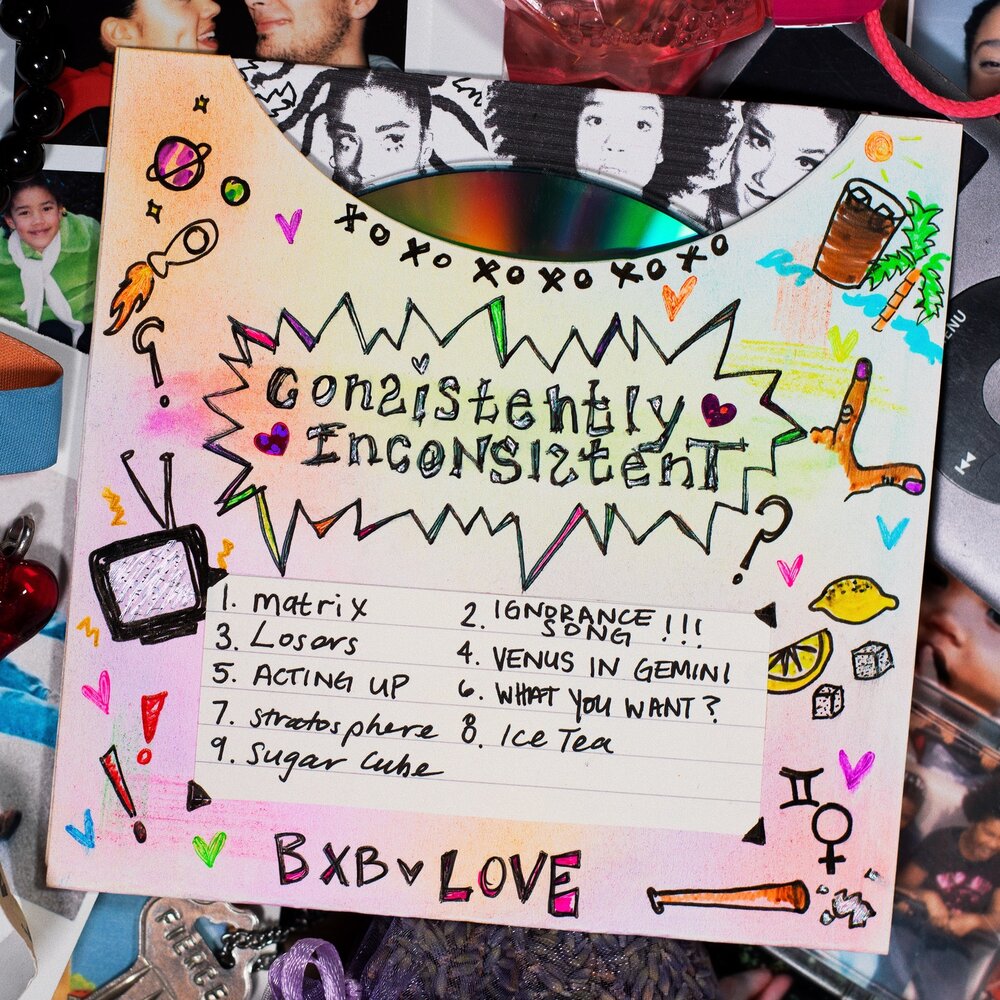 XOXO XOXO XOXO
Consistently
InconsistenT
1. matrix
2. IGNORANCE
SONG !!!
3. Losers
4. VENUS IN GEMINI
5. ACTING UP
6. WHAT YOU WANT?
7. stratosphere
8. Ice Tea
9. Sugar Cube
BXB LOVE
MENU
PIERCE